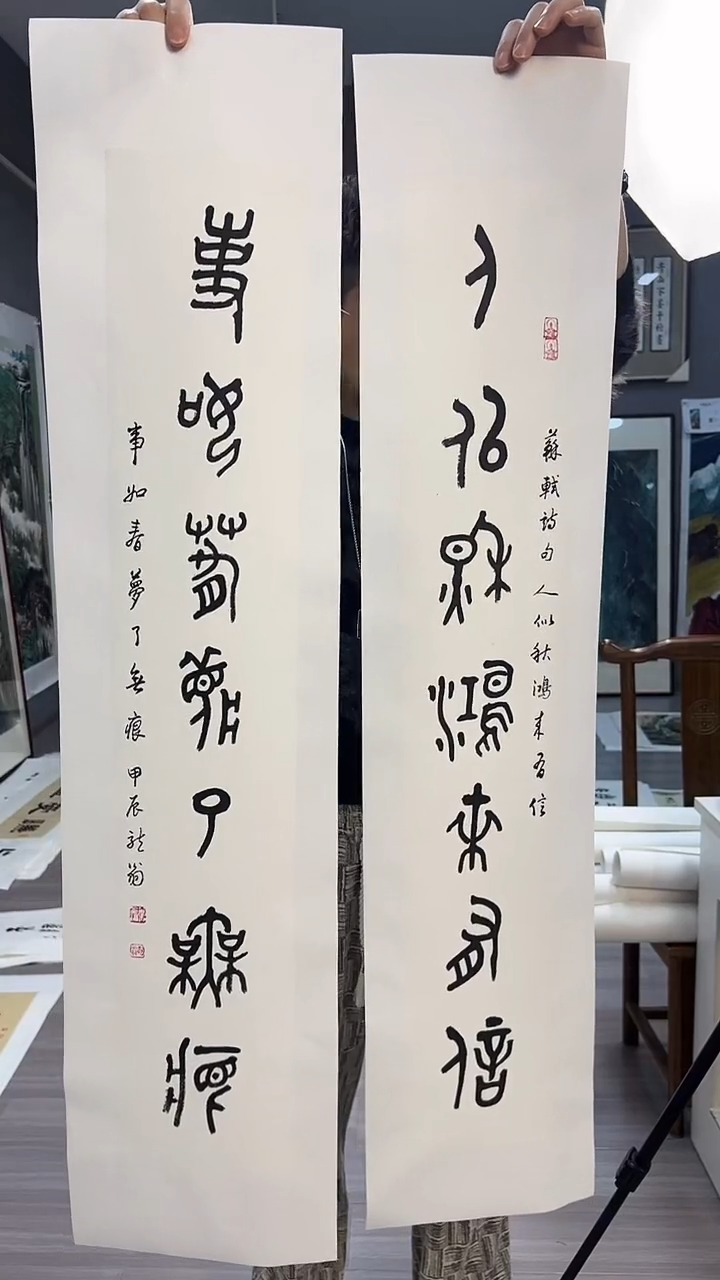 人似秌鴻來有信
蘇軾詩句 人似秋鴻來有信
事如萅夢了無痕
事如春夢了無痕 甲辰龍翁